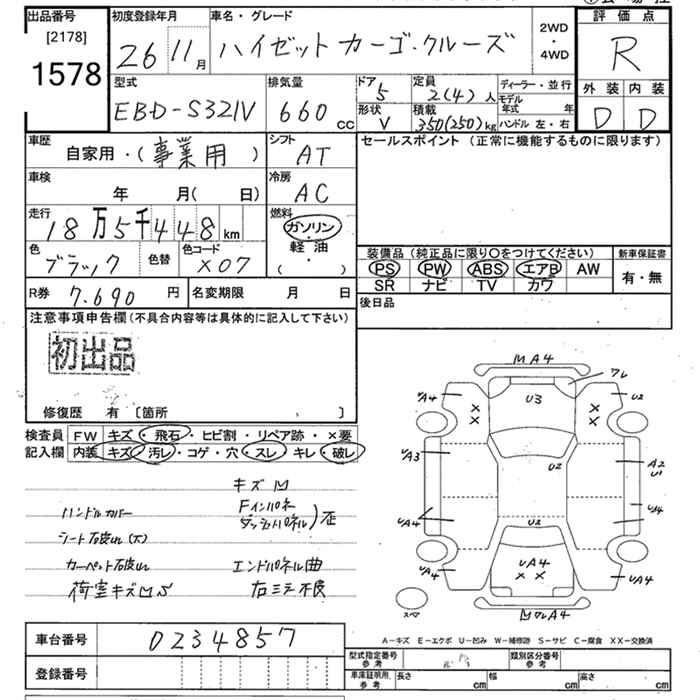 出品番号
[2178]
1578
初度登録年月
26 11月
車名・グレード
ハイゼットカーゴ・クルーズ
2WD
・
4WD
評価点
R
外装 内装
D D
型式
EBD-S321V
排気量
660 CC
ドア
5
形状
V
定員
2(4)人
積載
350(250)kg
ディーラー・並行
モデル年式 年
ハンドル 左・右
車歴
自家用・(事業用)
シフト
AT
セールスポイント (正常に機能するものに限ります)
車検
年 月( 日)
冷房
AC
走行
18万5千448km
燃料
ガソリン
・
軽油
( )
色
ブラック
色替
色コード
X07
装備品 (純正品に限り○をつけてください)
PS PW ABS エアB AW
SR ナビ TV カワ
新車保証書
有・無
R券 7.690円
名変期限 月 日
後日品
注意事項申告欄(不具合内容等は具体的に記入して下さい)
初出品
修復歴 有 〔箇所 、 〕
検査員
記入欄
FW キズ・飛石・ヒビ割・リペア跡・×要
内装 キズ・汚レ・コゲ・穴・スレ・キレ・破レ
キズ M
ハンドルカバー
Fインパネ
ダッシュパネル)歪
カーペット
エンドパネル曲
荷室キズMS
右ミラー不良
MA4
フレ
A4
U2
U3
X X
X X
UA3
U2
A2
U1
UA4
U2
U4
UA4
UA4
X X
UA4
スペア
A4
A-キズ E-エクボ U-凹み W-補修跡 S-サビ C-腐食 XX-交換済
車台番号 0234857
登録番号
型式指定番号
参考
類別区分番号
参考
車庫証明用
参考
長さ cm 幅 cm 高さ cm